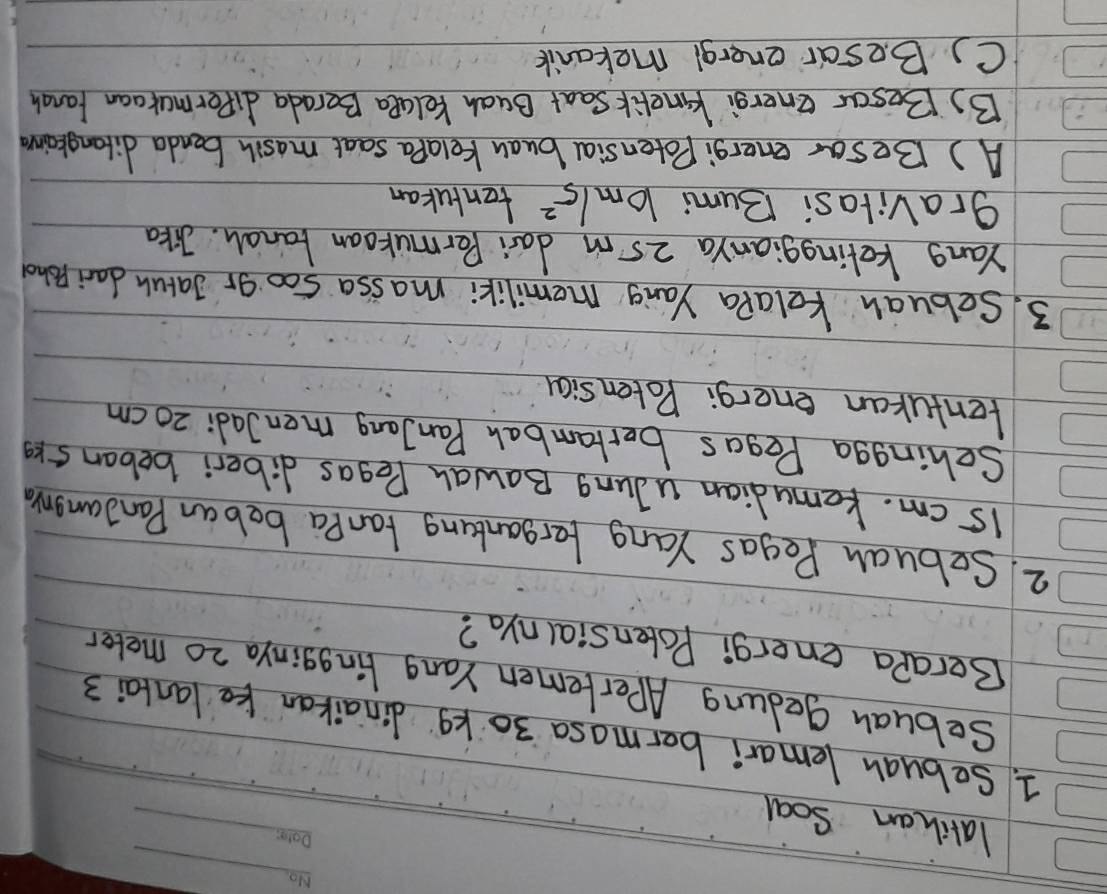 No.
Date:
latihan Soal
1. Sebuah lemari bermasa 30 kg dinaikan ke lantai 3
Sebuah gedung APertemen Yang tingginya 20 meter
BeraPa energi Potensialnya?
2. Sebuah Pegas Yang tergantung tanPa beban Panjangnya
15 cm. kemudian ujung Bawah Pegas diberi beban 5 kg
Sehingga Pegas bertambah Panjang menjadi 20 cm
tentukan energi Potensial
3. Sebuah kelaPa Yang memiliki massa 500 gr Jatuh dari Pohon
Yang ketinggianYa 25 m dari Permukaan tanah. Jika
graVitasi Bumi 10 m/s² tentukan
A) Besar energi Potensial buah kelaPa saat masih benda ditangkainya
B) Besar energi kinetik Saat Buah kelaPa Berada diPermukaan tanah
C) Besar energi mekanik